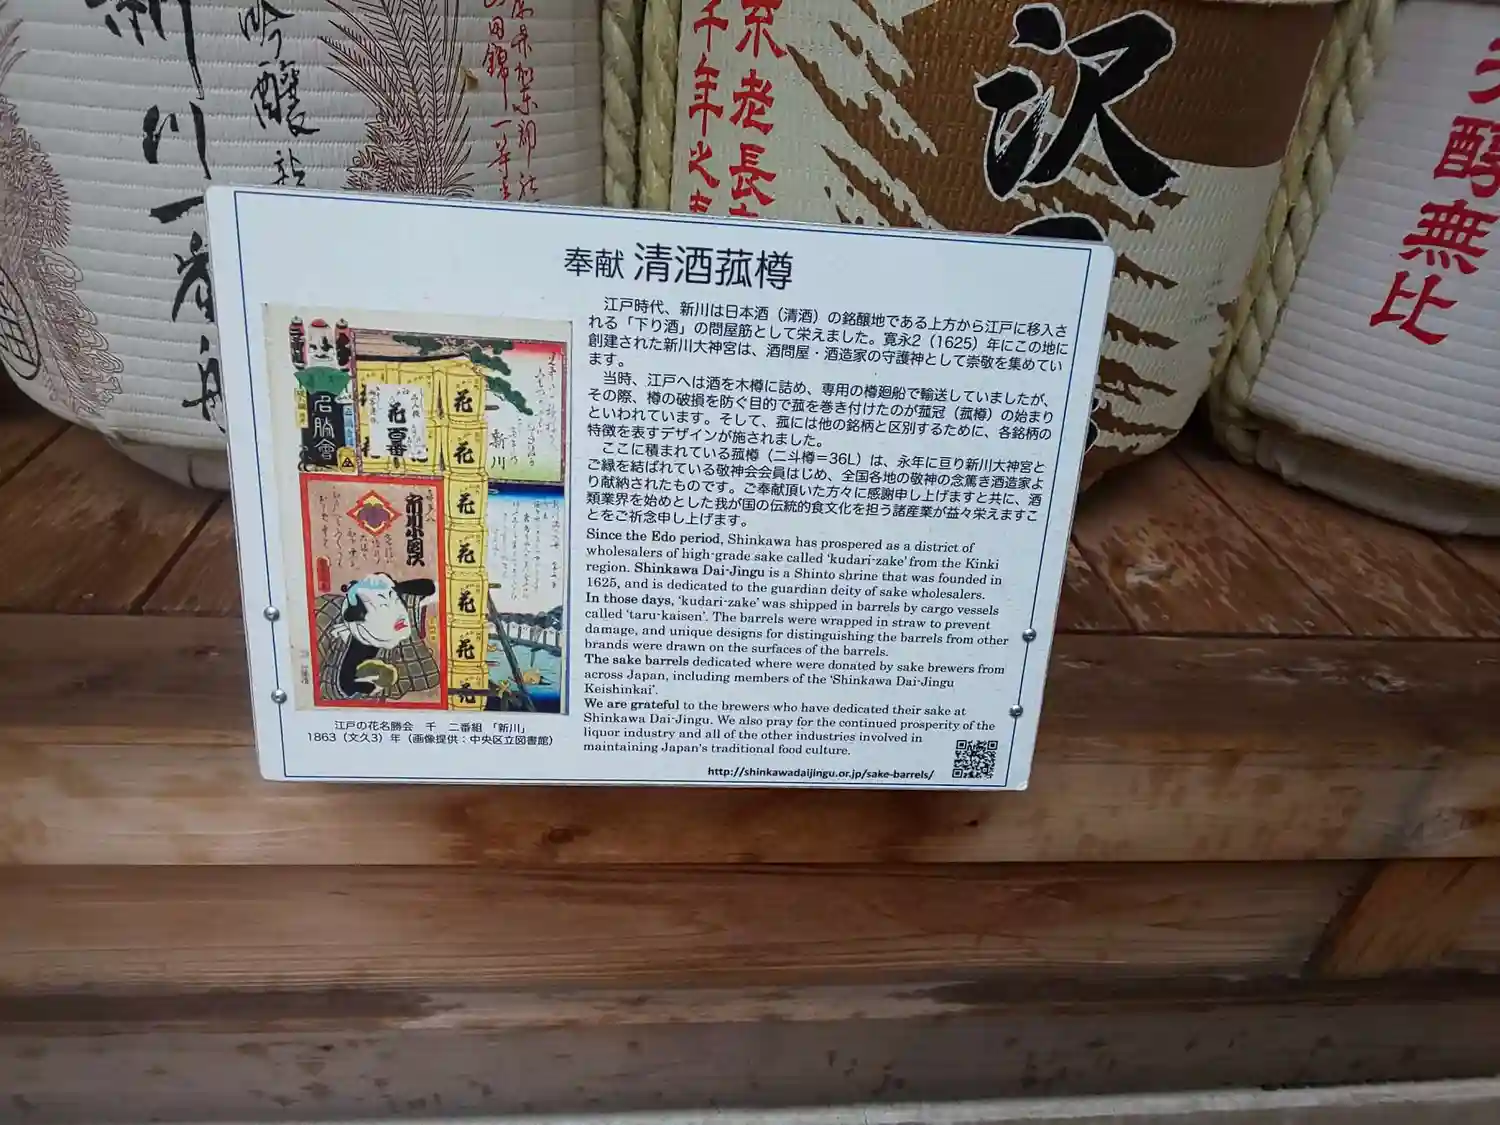 新川
一
吟醸
山田錦
一等
千年之
老長
沢
醇無比
奉献 清酒菰樽
江戸時代、新川は日本酒（清酒）の銘醸地である上方から江戸に移入さ
れる「下り酒」の問屋筋として栄えました。寛永2（1625）年にこの地に
創建された新川大神宮は、酒問屋・酒造家の守護神として崇敬を集めてい
ます。
当時、江戸へは酒を木樽に詰め、専用の樽廻船で輸送していましたが、
その際、樽の破損を防ぐ目的で菰を巻き付けたのが菰冠（菰樽）の始まり
といわれています。そして、菰には他の銘柄と区別するために、各銘柄の
特徴を表すデザインが施されました。
ここに積まれている菰樽（二斗樽＝36L）は、永年に亘り新川大神宮と
ご縁を結ばれている敬神会会員はじめ、全国各地の敬神の念篤き酒造家よ
り献納されたものです。ご奉献頂いた方々に感謝申し上げますと共に、酒
類業界を始めとした我が国の伝統的食文化を担う諸産業が益々栄えますこ
とをご祈念申し上げます。
Since the Edo period, Shinkawa has prospered as a district of
wholesalers of high-grade sake called 'kudari-zake' from the Kinki
region. Shinkawa Dai-Jingu is a Shinto shrine that was founded in
1625, and is dedicated to the guardian deity of sake wholesalers.
In those days, 'kudari-zake' was shipped in barrels by cargo vessels
called 'taru-kaisen'. The barrels were wrapped in straw to prevent
damage, and unique designs for distinguishing the barrels from other
brands were drawn on the surfaces of the barrels.
The sake barrels dedicated where were donated by sake brewers from
across Japan, including members of the 'Shinkawa Dai-Jingu
Keishinkai'.
We are grateful to the brewers who have dedicated their sake at
Shinkawa Dai-Jingu. We also pray for the continued prosperity of the
liquor industry and all of the other industries involved in
maintaining Japan's traditional food culture.
http://shinkawadaijingu.or.jp/sake-barrels/
名勝會
花
新川
花
花
花
花
花
花
花
江戸の花名勝会 千 二番組 「新川」
1863（文久3）年（画像提供：中央区立図書館）